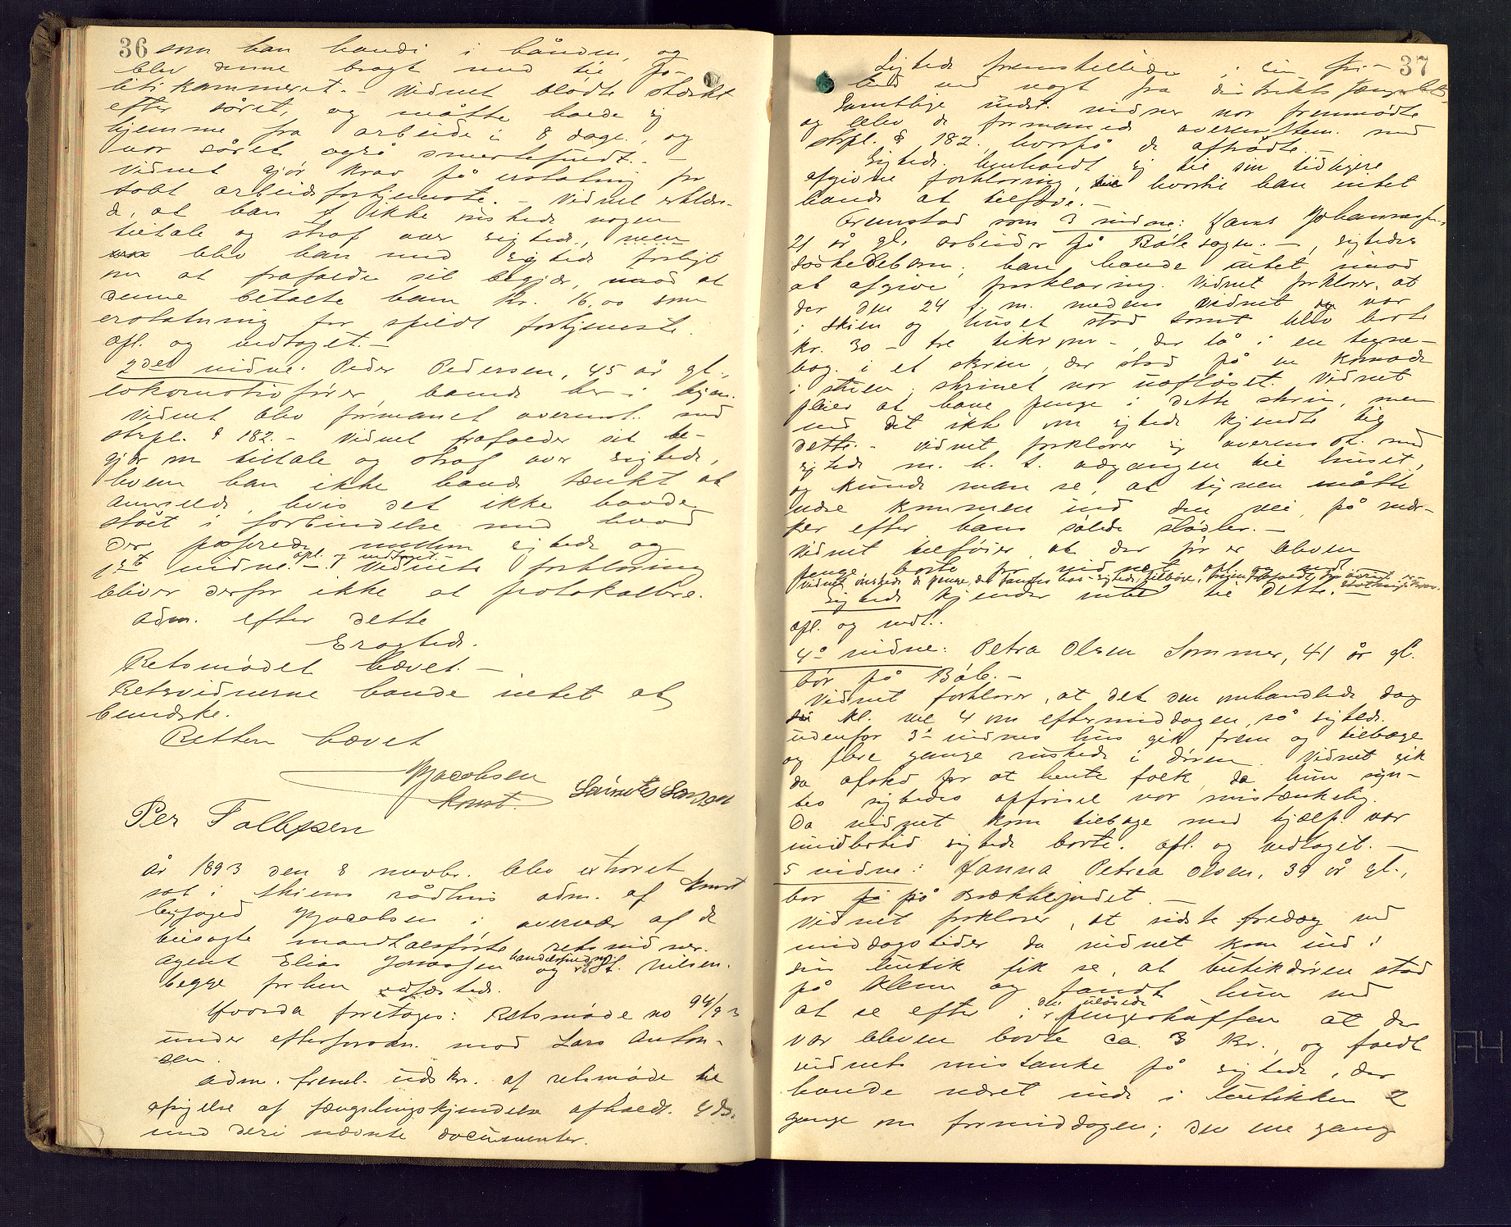 36
som han havde i hånden, og
blev denne bragt med til po-
litikammeret. - Vidnet blødte stærkt
efter såret, og måtte holde sig
hjemme fra arbeide i 8 dage, og
var såret også smertefuldt. -
Vidnet gjør krav på erstatning for
tabt arbeidsfortjeneste. - Vidnet erklær-
te, at han ikke ønskede nogen
tiltale og straf over sigtede, men
blev han med sigtede forligt
om at frafalde sit begjær, mod at
denne betalte ham kr. 16,00 som
erstatning for spildt fortjeneste.
Opl. og vedtaget. -
2det vidne. Peder Pedersen, 45 år gl.,
lokomotivfører, boende her i byen.
Vidnet blev formanet overenst. med
strpl. § 182. - Vidnet frafalder sit be-
gjær om tiltale og straf over sigtede,
hvem han ikke havde tænkt at
anmelde, hvis det ikke havde
stået i forbindelse med hvad
der passerede mellem sigtede og
1ste vidne. - opl. og vedtaget. - Vidnets forklaring
bliver derfor ikke at protokollere.
Adm. efter dette
Eragted:
Retsmødet hævet -
Retsvidnerne havde intet at
bemærke.
Retten hævet
Jacobsen
const.
Per Tollefsen
År 1893 den 8 novbr. blev extraret
sat i Skiens rådhus adm. af const
byfoged Jacobsen i overvær af de
beisagte mandtalsførte retsvidner.
Agent Elias Jonassen og handelsfuldm. Nilsen.
begge forhen edfæstede.
Hvorda foretoges: Retsmøde no 94/93
under efterforskn. mod Lars Anton-
sen.
Adm. freml. udskr. af retsmøde til
afsigelse af fængslingskjendelse afholdt 4 ds.
med deri nævnte documenter.
37
Sigtede fremstilledes i en fri-
led med vagt fra distrikts fængselet.
Samtlige indst. vidner var fremmødte
og blev de formanede overenstem. med
strpl. § 182, hvorpå de aftrådte.
Sigtede henholdt sig til sin tidligere
afgivne forklaring, hvortil han intet
havde at tilføie. -
Fremstod som 3 vidne: Hans Johannesen,
21 år gl. arbeider på Bøle sagen. - , sigtedes
søskendebarn; han havde intet imod
at afgive forklaring. Vidnet forklarer, at
der den 24 f. m. medens vidnet var
i Skien og huset stod tomt blev borte
kr. 30 - tre tikroner -, der lå i en tegne-
bog i et skrin, der stod på en komode
i stuen; skrinet var uaflåset. Vidnet
pleier at have penge i dette skrin, men
ved det ikke om sigtede kjendte til
dette. - Vidnet forklarer sig overens st. med
sigtede m. h. t. adgangen til huset,
og kunde man se, at tyven måtte
være kommen ind den vei, på mær-
ker efter hans sålede støvler. -
Vidnet tilføier, at der før er bleven
penge borte for vidnet opl. og ved
Sigtede kjender intet til dette. -
opl. og vedt.
4de vidne: Petra Olsen Sommer, 41 år gl.
bor på Bøle. -
Vidnet forklarer, at det den omhandlede dag
kl. ca 4 om eftermiddagen, så sigtede
udenfor 3de vidnes hus gik frem og tilbage
og flere gange ruskede i døren. Vidnet gik
da afsted for at hente folk, da hun syn-
tes sigtedes opførsel var mistænkelig.
Da vidnet kom tilbage med hjælp var
imidlertid sigtede borte. Opl. og vedtaget. -
5 vidne: Hanna Petrea Olsen, 39 år gl.,
bor på Brekkejordet. -
Vidnet forklarer, at sidste fredag ved
middagstider da vidnet kom ind i
sin butik fik se, at butikdøren stod
på klem og fandt hun ved
at se efter i den ulåsede pengeskuffen at der
var bleven borte ca. 3 kr., og faldt
vidnets mistanke på sigtede, der
havde været inde i butikken 2
gange om formiddagen; den ene gang